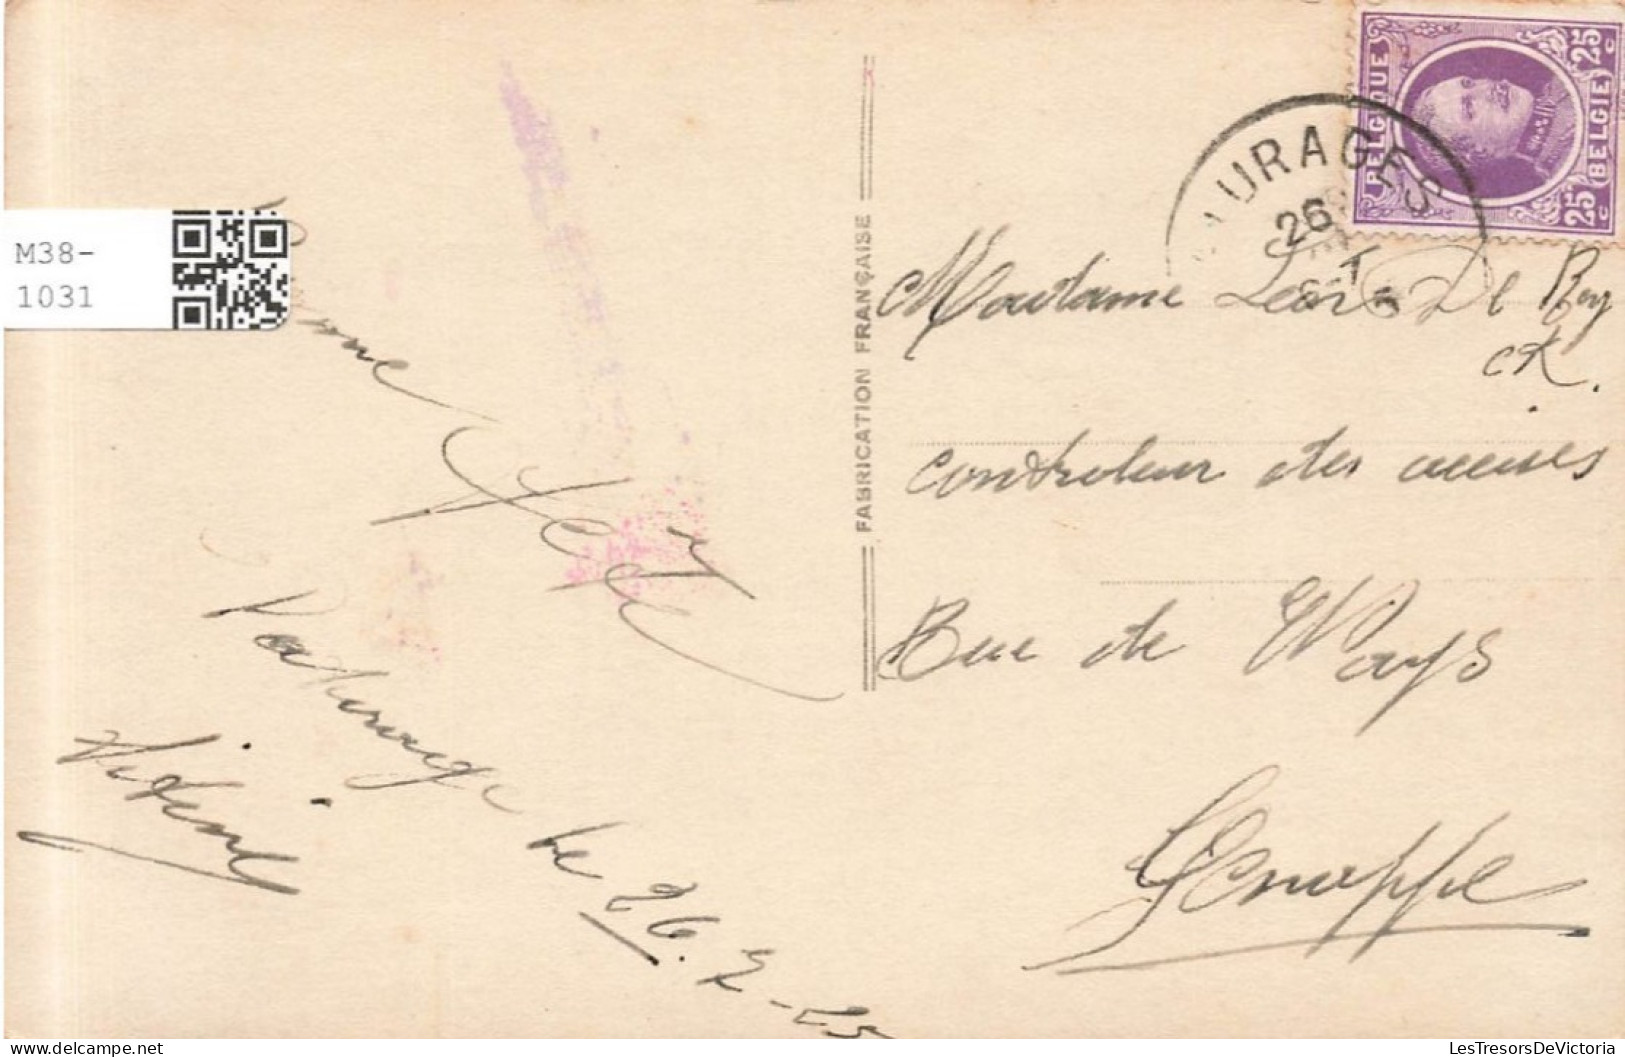 M38-
1031
Bonne Fête
Paturages le 26. 2-25
FABRICATION FRANÇAISE
BELGIQUE BELGIE
25 c 25 c
PATURAGES
26
Madame Léon De Roy
controleur des accises
Rue de Ways
Genappe
LesTresorsDeVictoria
www.delcampe.net